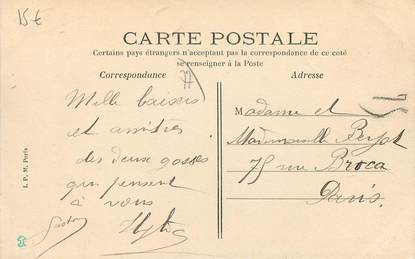 15€
CARTE POSTALE
Certains pays étrangers n'acceptant pas la correspondance de ce côté
se renseigner à la Poste
Correspondance
Adresse
Mille baisers
et amitiés
des deux gosses
qui pensent
à vous
Gaston
Madame et
Mademoiselle
75 rue Broca
Paris.
I. P. M. Paris